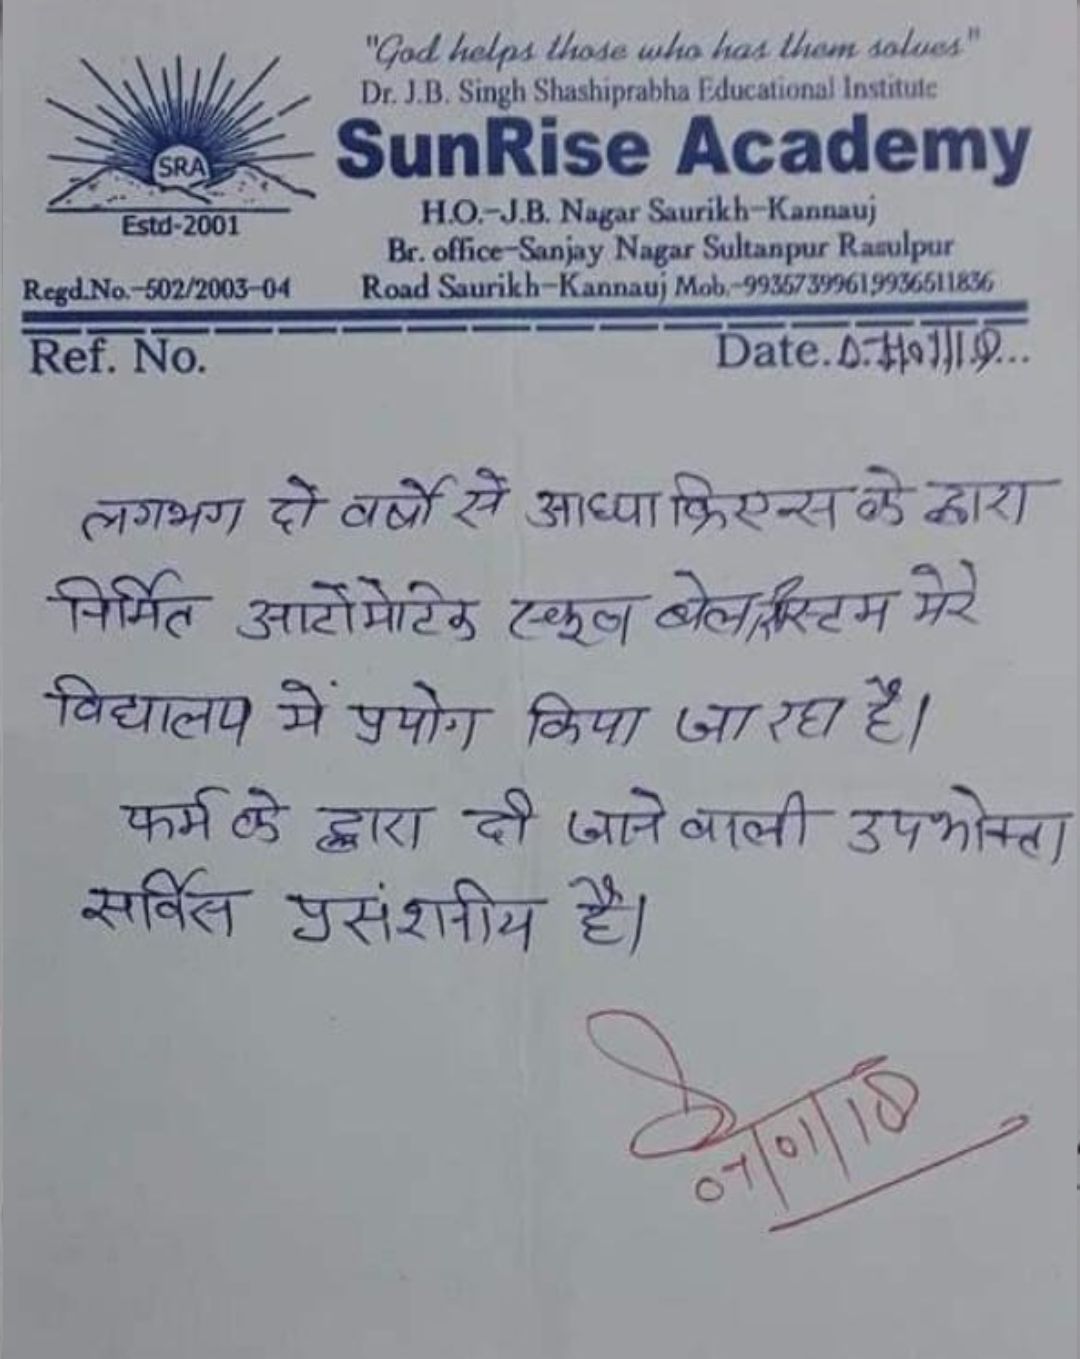 "God helps those who has them solves"
Dr. J.B. Singh Shashiprabha Educational Institute
SunRise Academy
SRA
Estd-2001
H.O.-J.B. Nagar Saurikh-Kannauj
Br. office-Sanjay Nagar Sultanpur Rasulpur
Regd.No.-502/2003-04
Road Saurikh-Kannauj Mob.-9935739961,9936511836
Ref. No.
Date.
लगभग दो वर्षो से आध्या क्रिएन्स के द्वारा
निर्मित आटोमेटिक स्कूल बेल सिस्टम मेरे
विद्यालय में प्रयोग किया जा रहा है।
फर्म के द्वारा दी जाने वाली उपभोक्ता
सर्विस प्रसंशनीय है।
07/01/18